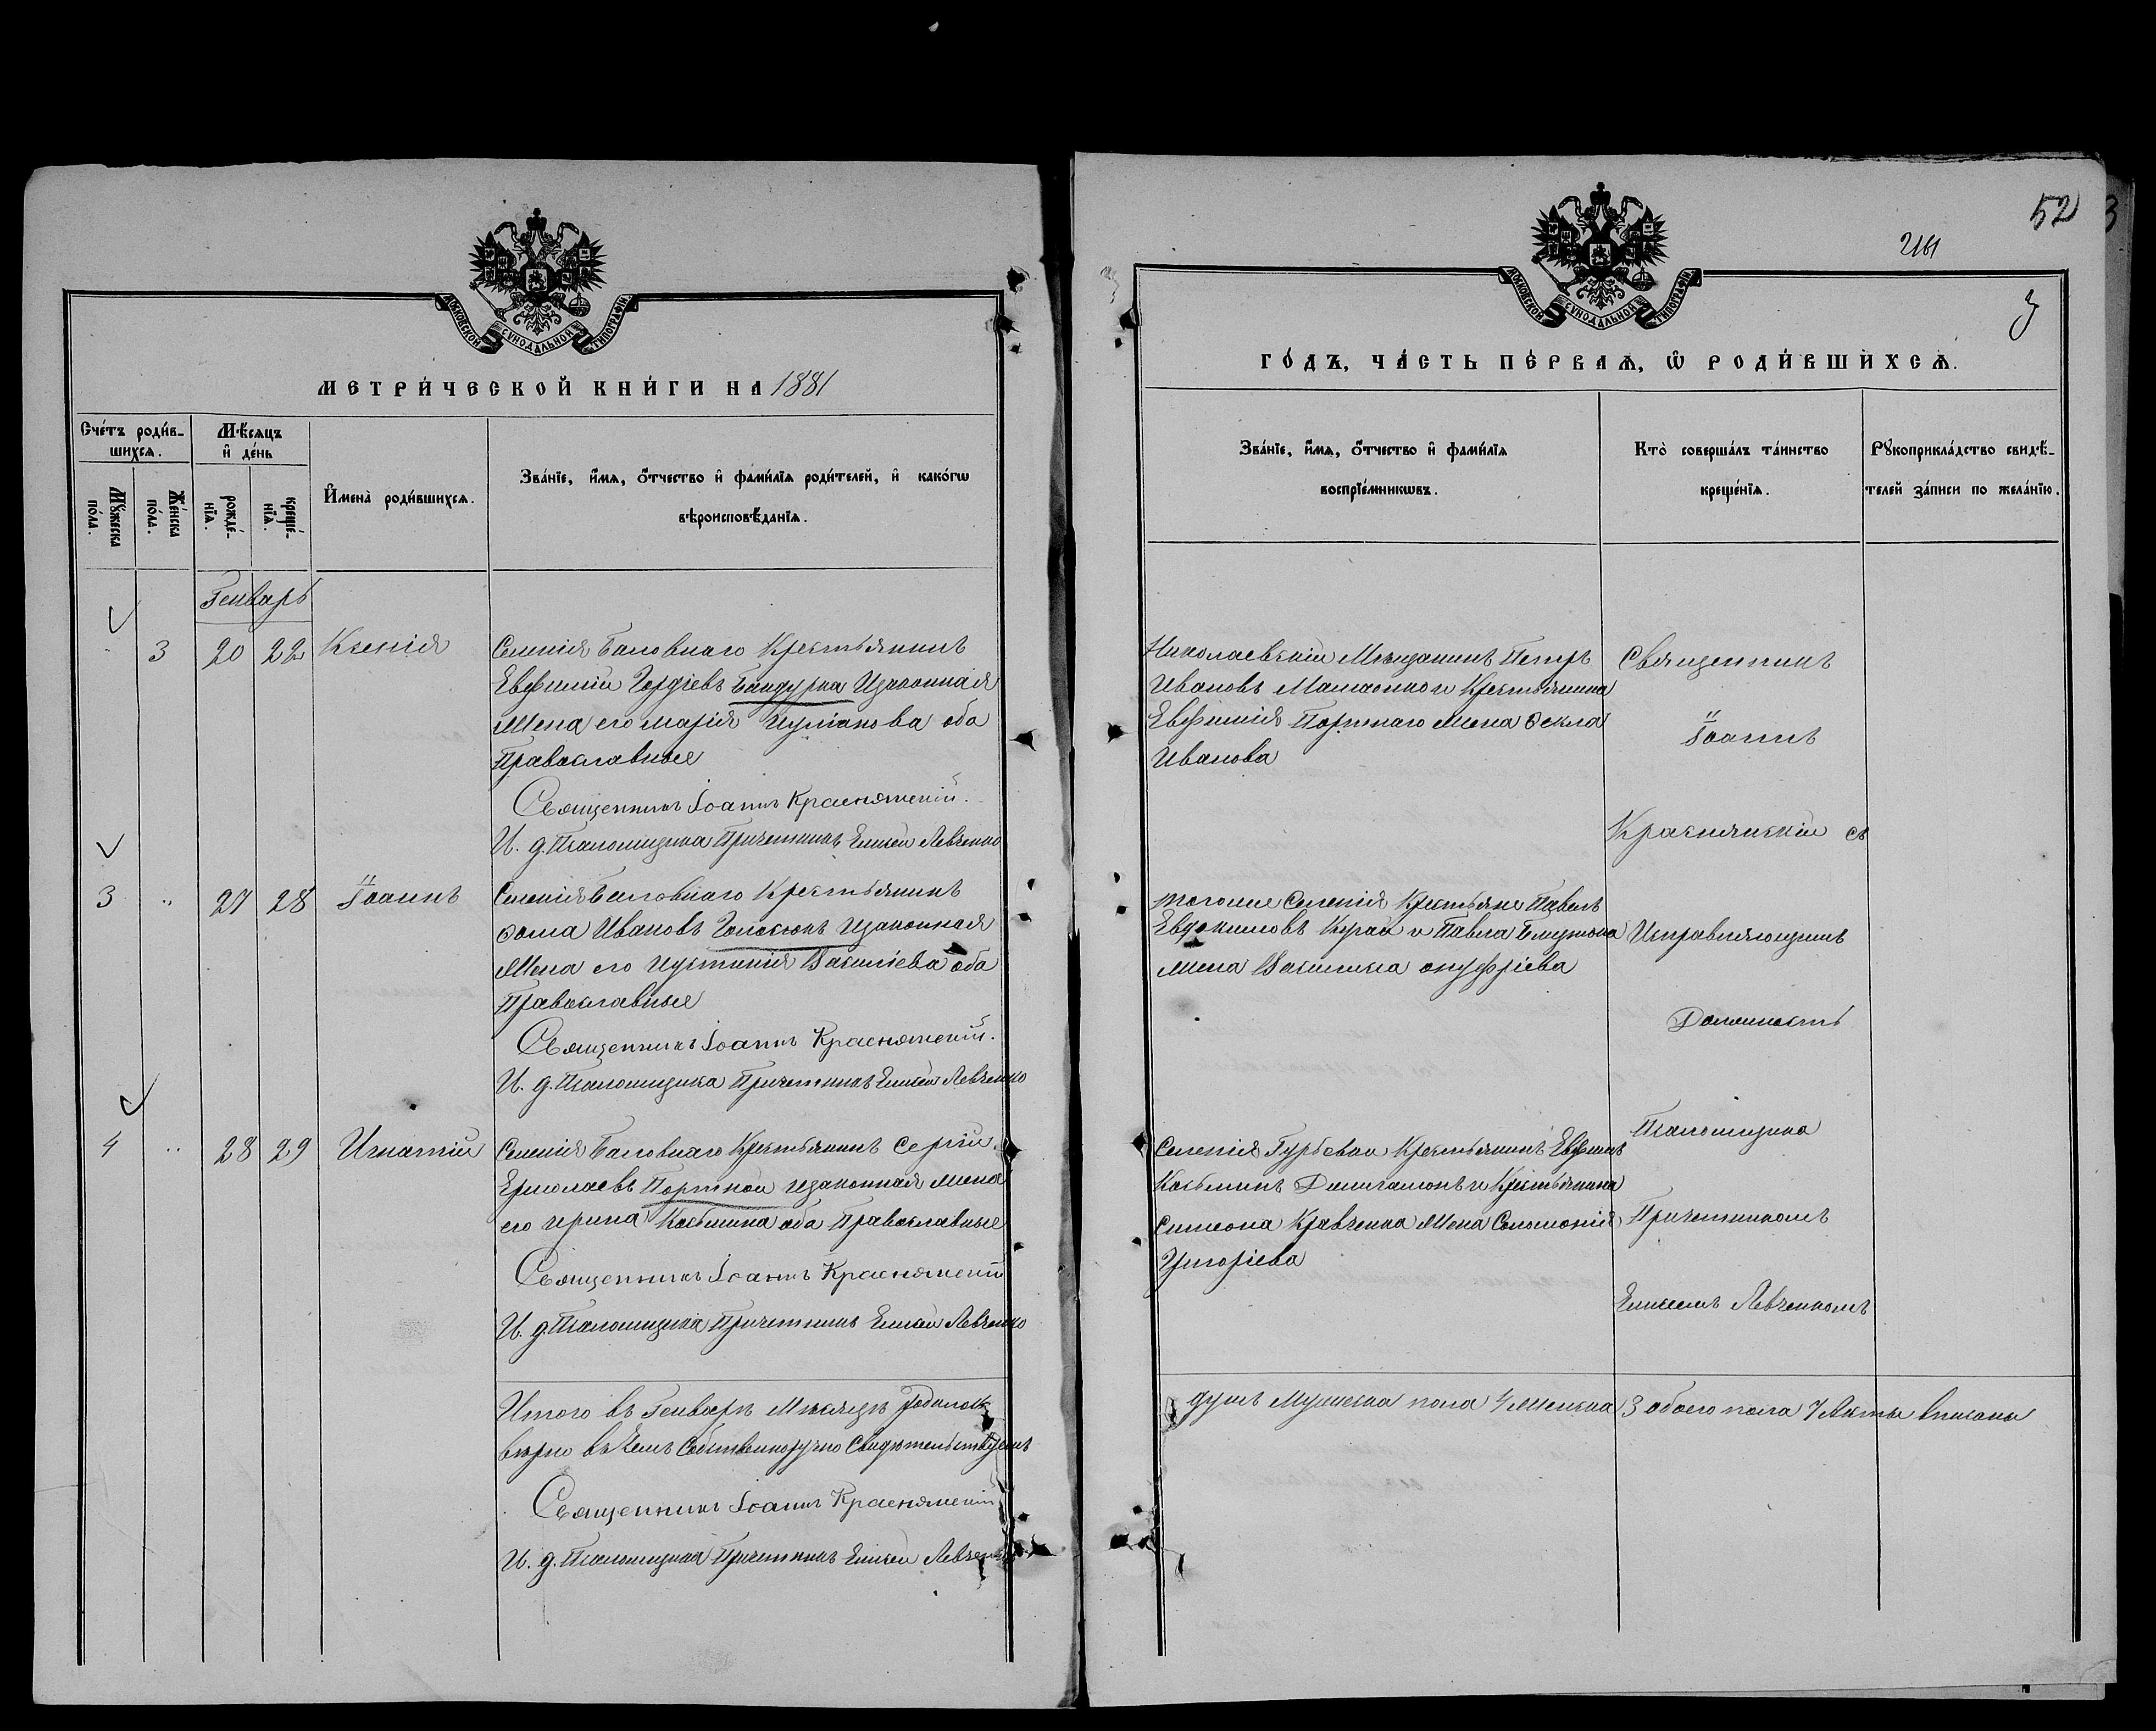 МОСКОВСКОЙ СѴНОДАЛЬНОЙ ТИПОГРАФІИ
МЕТРИ́ЧЕСКОЙ КНИ́ГИ НА 1881
Сче́тъ роди́в-
шихся.
Мѣ́сяцъ
и҆ де́нь
Мꙋ́жеска
по́ла.
Же́нска
по́ла.
рожде́-
нїѧ.
креще́-
нїѧ.
И҆мена̀ роди́вшихся.
Зва́нїе, и҆́мѧ, ѻ҆́тчество и҆ фами́лїѧ роди́телей, и҆ како́гѡ
вѣроисповѣ́данїѧ.
Генварь
3 20 22 Ксенія
Селенія Баловнаго Крестьянинъ
Евфимій Гордіевъ Бандурка Изаконная
Жена его Марія Иуліанова оба
Православные
Священникъ Іоаннъ Красняжскій.
И. д. Псаломщика Причетникъ Елисей Левченко
3 „ 27 28 Іоаннъ
Селенія Баловнаго Крестьянинъ
Ѳома Ивановъ Голосюкъ Изаконная
Жена его Иустинія Василіева оба
Православные
Священникъ Іоаннъ Красняжскій.
И. д. Псаломщика Причетникъ Елисей Левченко
4 „ 28 29 Игнатій
Селенія Баловнаго Крестьянинъ Сергій
Ермолаевъ Портной изаконная жена
его Ирина Козьмина оба Православные
Священникъ Іоаннъ Красняжскій
И. д. Псаломщика Причетникъ Елисей Левченко
Итого въ Генварѣ Мѣсяцѣ Родилось
вѣрно въ Чемъ Собственноручно Свидѣтельствуемъ
Священникъ Іоаннъ Красняжскій
И. д. Псаломщика Причетникъ Елисей Левченко
52
3
МОСКОВСКОЙ СѴНОДАЛЬНОЙ ТИПОГРАФІИ
ГО́ДЪ, ЧА́СТЬ ПЕ́РВАѦ, Ѡ҆ РОДИ́ВШИХСѦ.
Зва́нїе, и҆́мѧ, ѻ҆́тчество и҆ фами́лїѧ
воспрїе́мникѡвъ.
Кто̀ соверша́лъ та́инство
креще́нїѧ.
Рꙋкоприкла́дство свидѣ́-
телей за́писи по жела́нїю.
Николаевскій Мѣщанинъ Петръ
Ивановъ и Крестьянина
Евфимія Портнаго Жена Ѳекла
Иванова
тогоже Селенія Крестьяне Павелъ
Евдокимовъ Курай и Павла
жена Василиса Онуфріева
Селенія Гурьевки Крестьянинъ Евфимъ
Козьминъ и Крестьянина
Симеона Кравченка Жена Соломонія
Григоріева
Священникъ
Іоаннъ
Красняжскій съ
Исправляющимъ
Должность
Псаломщика
Причетникомъ
Елисеемъ Левченкомъ
душъ Мужеска пола 4 Женска 3 обоего пола 7 Акты вписаны